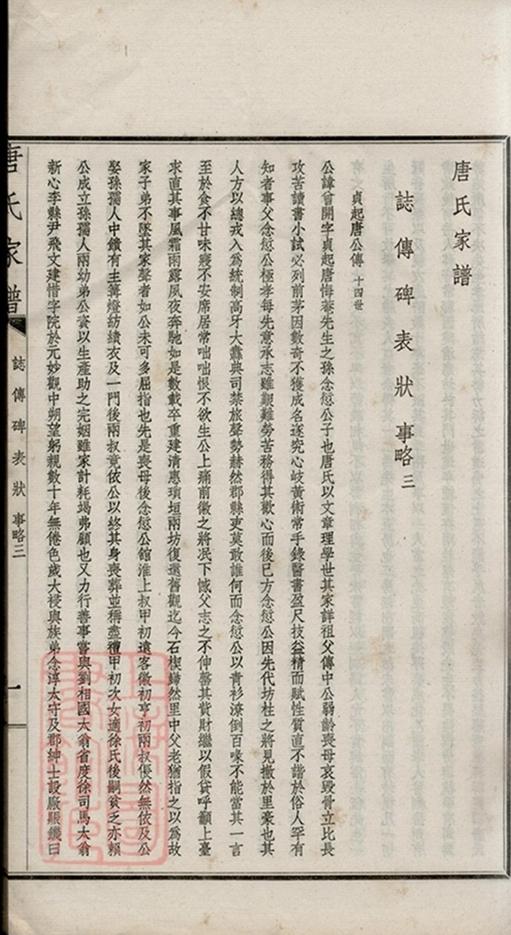 唐氏家譜
誌傳碑表狀事略三
貞起唐公傳 十四世
公諱曾開字貞起唐悔菴先生之孫念愆公子也唐氏以文章理學世其家詳祖父傳中公弱齡喪母哀毀骨立比長
攻苦讀書小試必列前茅因數奇不獲成名遂究心岐黃術常手錄醫書盈尺技益精而賦性質直不諧於俗人罕有
知者事父念愆公極孝每先意承志雖艱難勞苦務得其歡心而後已方念愆公因先代坊柱之將見撤於里豪也其
人方以總戎入為統制高牙大纛與司禁旅聲勢赫然郡縣吏莫敢誰何而念愆公以青衫潦倒百喙不能當其一言
至於食不甘味寢不安席居常咄咄恨不欲生公上痛前徽之將泯下慽父志之不伸罄其貲財繼以假貸呼籲上臺
求直其事風霜雨露夙夜奔馳如是數載卒重建清惠瑣垣兩坊復還舊觀迄今石楔巋然里中父老猶指之以為故
家子弟不墜其家聲者如公未可多屈指也先是喪母後念愆公館淮上叔甲初遠客徽初亨初兩叔倀然無依及公
娶孫孺人中饋有主篝燈紡績衣及一門後兩叔竟依公以終其身喪葬並稱盡禮甲初次女適徐氏後嗣貧乏亦賴
公成立孫孺人兩幼弟公貲以生產助之完姻雖家計耗竭弗顧也又力行善事嘗與劉相國太翁省度徐司馬太翁
新心李縣尹飛文建惜字院於元妙觀中朔望躬親數十年無倦色歲大祲與族弟念淳太守及郡紳士設廠賑饑曰
唐氏家譜
誌傳碑表狀事略三
一